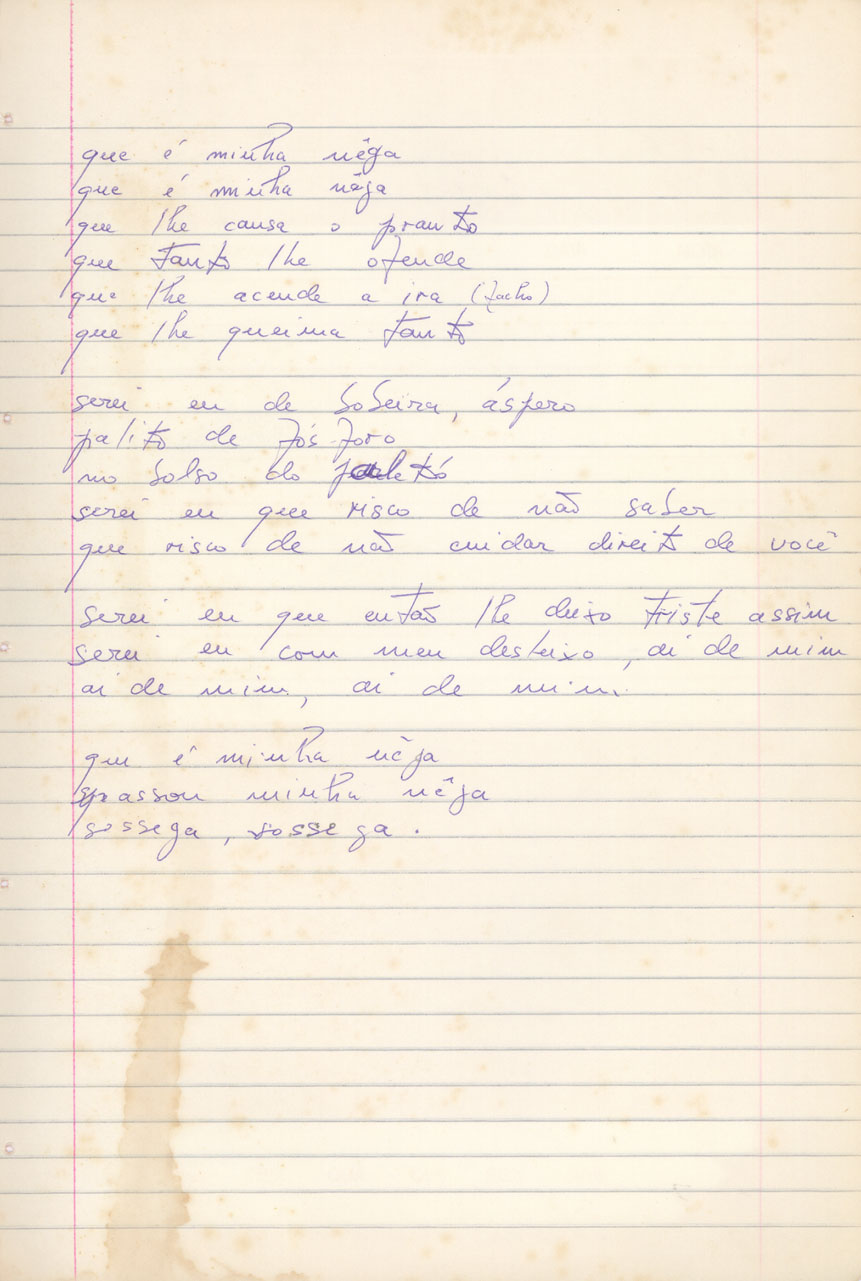 que é minha nêga
que é minha nêga
que lhe causa o pranto
que tanto lhe ofende
que lhe acende a ira (facho)
que lhe queima tanto
serei eu de bobeira, áspero
palito de fósforo
no bolso do paletó
serei eu que risco de não saber
que risco de não cuidar direito de você
serei eu que então lhe deixo triste assim
serei eu com meu desleixo, ai de mim
ai de mim, ai de mim.
que é minha nêga
passou minha nêga
sossega, sossega.